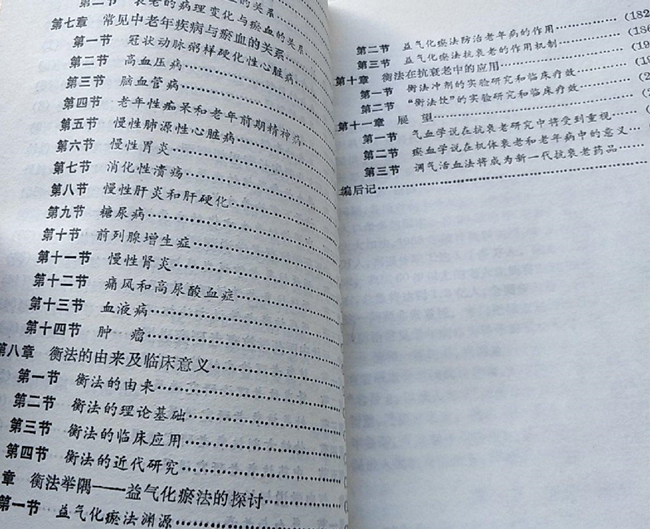 第二节 衰老的病理变化与瘀血的关系
第七章 常见中老年疾病与瘀血的关系
第一节 冠状动脉粥样硬化性心脏病
第二节 高血压病
第三节 脑血管病
第四节 老年性痴呆和老年前期精神病
第五节 慢性肺源性心脏病
第六节 慢性胃炎
第七节 消化性溃疡
第八节 慢性肝炎和肝硬化
第九节 糖尿病
第十节 前列腺增生症
第十一节 慢性肾炎
第十二节 痛风和高尿酸血症
第十三节 血液病
第十四节 肿 瘤
第八章 衡法的由来及临床意义
第一节 衡法的由来
第二节 衡法的理论基础
第三节 衡法的临床应用
第四节 衡法的近代研究
章 衡法举隅——益气化瘀法的探讨
第一节 益气化瘀法渊源
第二节 益气化瘀法防治老年病的作用 (182
第三节 益气化瘀法抗衰老的作用机制 (186
第十章 衡法在抗衰老中的应用
第一节 衡法冲剂的实验研究和临床疗效
第二节 “衡法饮”的实验研究和临床疗效
第十一章 展 望
第一节 气血学说在抗衰老研究中将受到重视
第二节 瘀血学说在机体衰老和老年病中的意义
第三节 调气活血法将成为新一代抗衰老药品
编后记